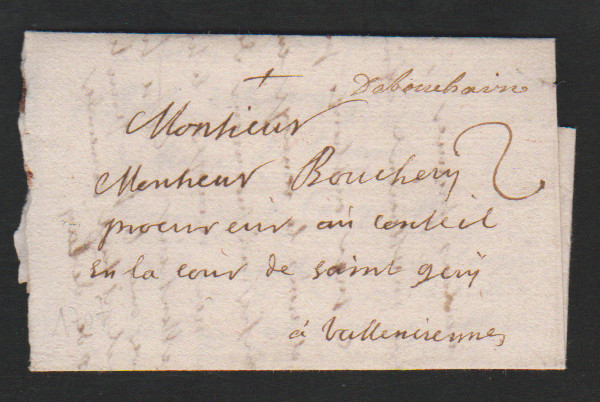 +
Debouchain
2
Monsieur
Monsieur Bouchery
procureur au conseil
en la cour de saint gery
á Vallenciennes